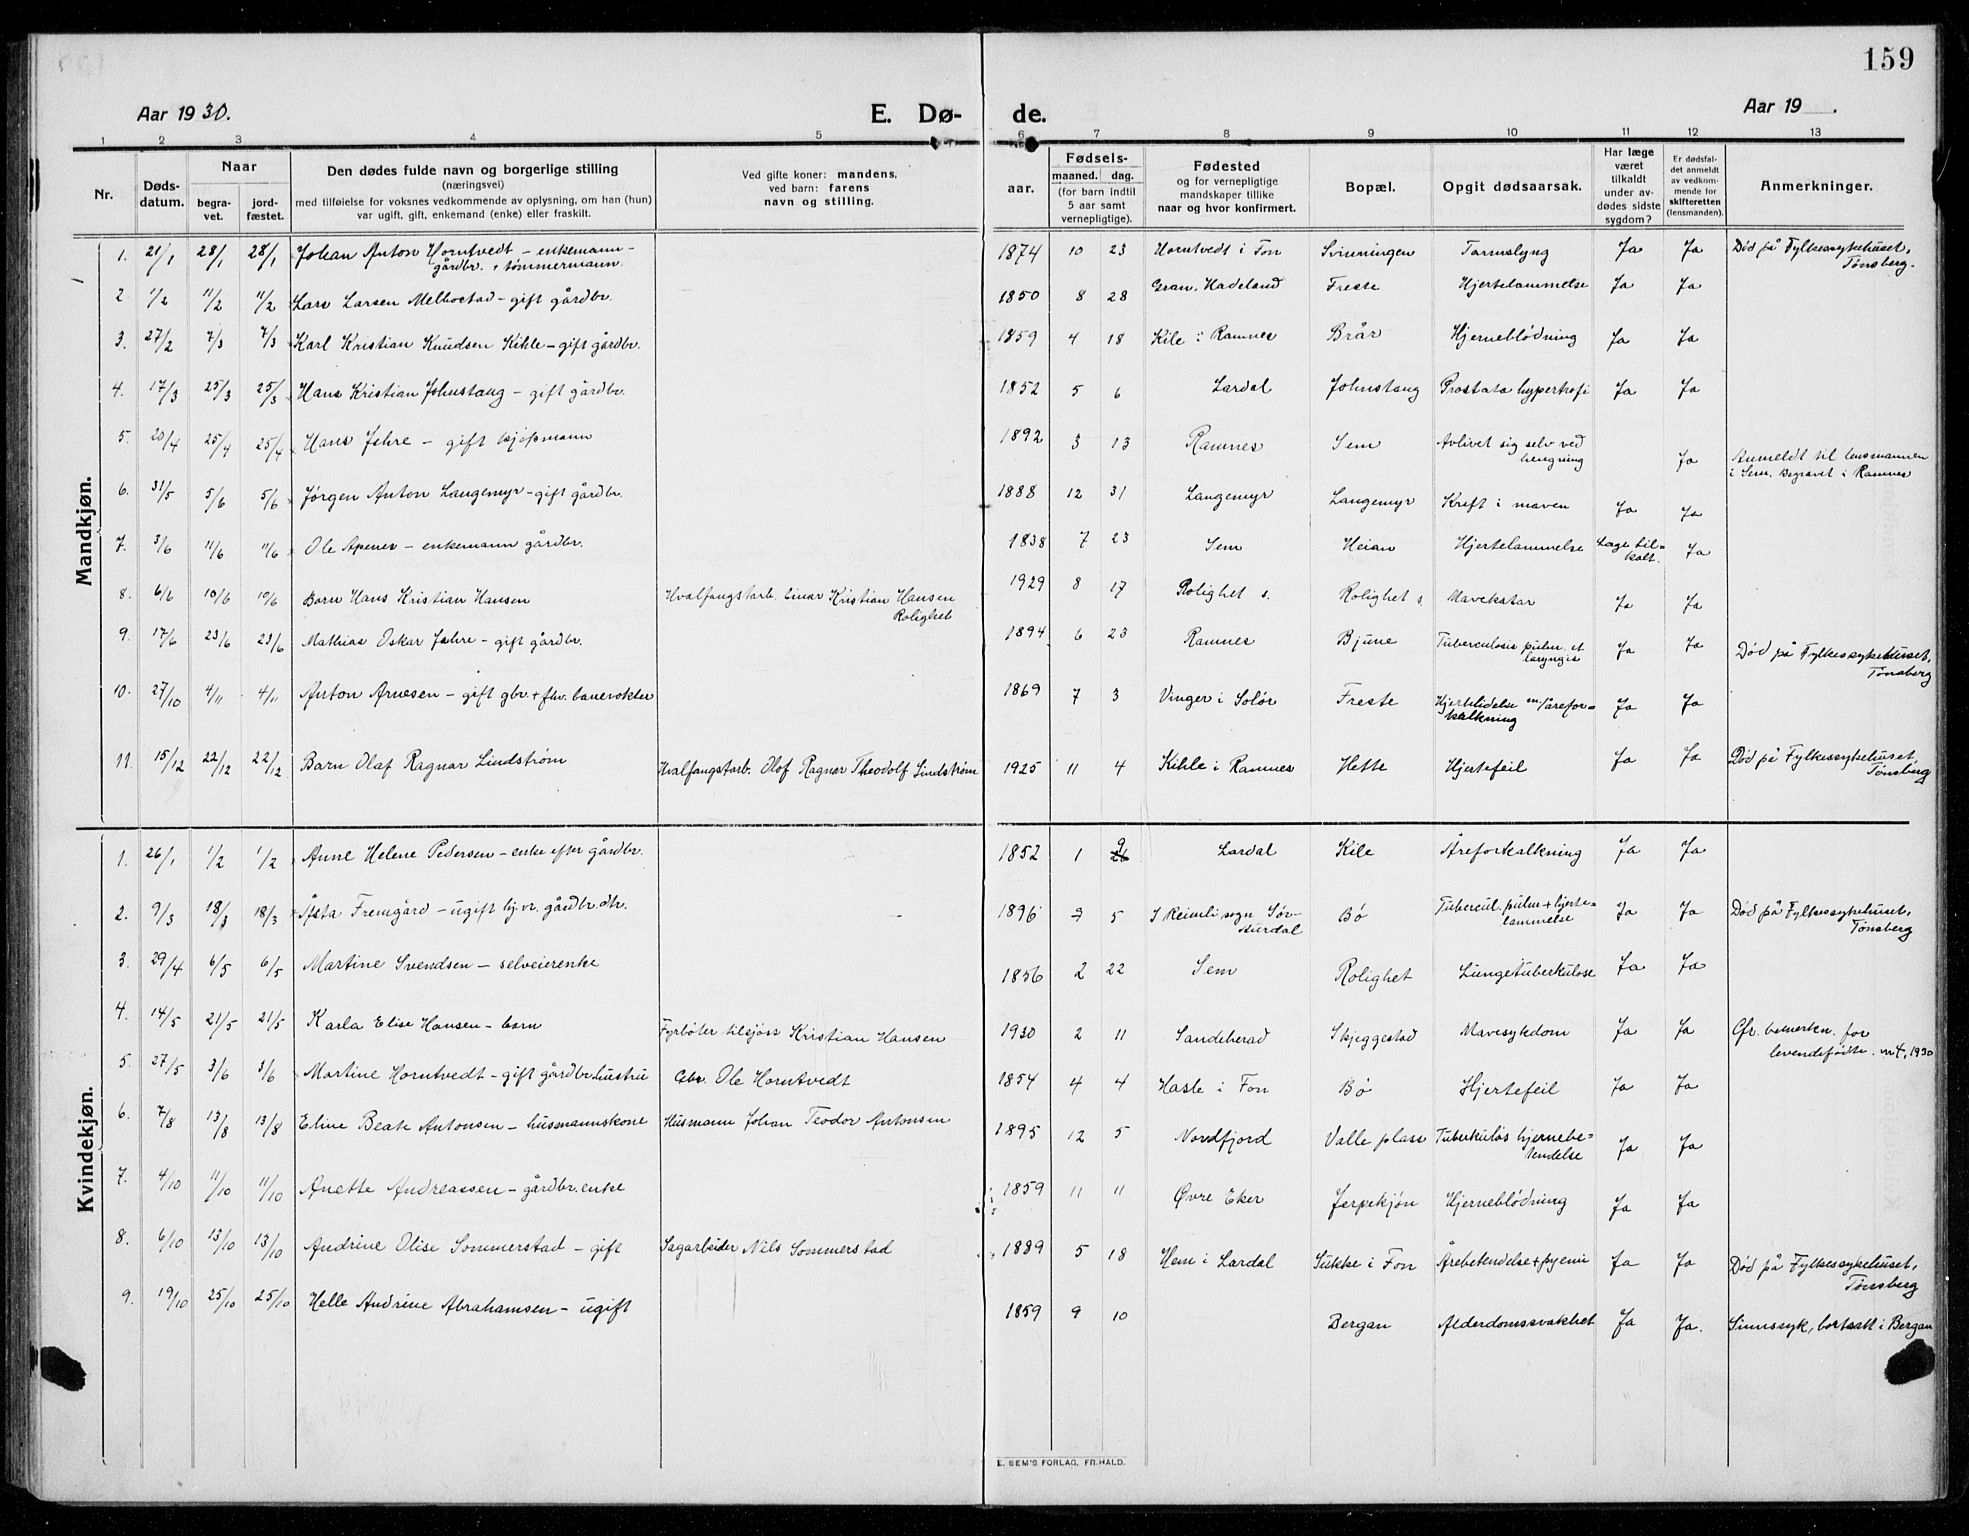 159
Aar 1930. E. Dø- de. Aar 19 .
1 2 3 4 5 6 7 8 9 10 11 12 13
Nr. Døds-datum. Naar begra-vet. jord-fæstet. Den dødes fulde navn og borgerlige stilling (næringsvei) med tilføielse for voksnes vedkommende av oplysning, om han (hun) var ugift, gift, enkemand (enke) eller fraskilt. Ved gifte koner: mandens, ved barn: farens navn og stilling. aar. Fødsels- maaned. dag. (for barn indtil 5 aar samt vernepligtige). Fødested og for vernepligtige mandskaper tillike naar og hvor konfirmert. Bopæl. Opgit dødsaarsak. Har læge været tilkaldt under av-dødes sidste sygdom? Er dødsfal-det anmeldt av vedkom-mende for skifteretten (lensmanden). Anmerkninger.
Mandkjøn.
1. 21/1 28/1 28/1 Johan Anton Horntvedt - enkemann - gårdbr. + tømmermann. 1874 10 23 Horntvedt i Fon Svinningen Tarmslyng Ja Ja Død på Fylkessykehuset, Tønsberg.
2. 1/2 11/2 11/2 Lars Larsen Melbostad - gift gårdbr. 1850 8 28 Gran, Hadeland Freste Hjertelammelse Ja Ja
3. 27/2 7/3 7/3 Karl Kristian Knudsen Kihle - gift gårdbr. 1859 4 18 Kile i Ramnes Brår Hjerneblødning Ja Ja
4. 17/3 25/3 25/3 Hans Kristian Johnstang - gift gårdbr. 1852 5 6 Lardal Johnstang Prostata hypertrofi Ja Ja
5. 20/4 25/4 25/4 Hans Jahre - gift kjøpmann 1892 3 13 Ramnes Sem Avlivet sig selv ved hengning Ja Anmeldt til lensmannen i Sem. Begravet i Ramnes
6. 31/5 5/6 5/6 Jørgen Anton Langemyr - gift gårdbr. 1888 12 31 Langemyr Langemyr Kreft i maven Ja Ja
7. 3/6 11/6 11/6 Ole Apenes - enkemann gårdbr. 1838 7 23 Sem Heian Hjertelammelse Læge til= kalt. Ja
8. 6/6 10/6 10/6 Barn Hans Kristian Hansen Hvalfangstarb. Einar Kristian Hansen Rolighet 1929 8 17 Rolighet s. Rolighet s. Mavekatar Ja Ja
9. 17/6 23/6 23/6 Mathias Oskar Jahre - gift gårdbr. 1894 6 23 Ramnes Bjune Tuberculosis pulm. et laryngis Ja Ja Død på Fylkessykehuset, Tønsberg
10. 27/10 4/11 4/11 Anton Arnesen - gift gbr. + fhv. banevokter 1869 7 3 Vinger i Solør Freste Hjertelidelse m/årefor= kalkning Ja Ja
11. 15/12 22/12 22/12 Barn Olaf Ragnar Lindstrøm Hvalfangstarb. Olof Ragnar Theodolf Lindstrøm 1925 11 4 Kihle i Ramnes Hette Hjertefeil Ja Ja Død på Fylkessykehuset, Tønsberg
Kvindekjøn.
1. 26/1 1/2 1/2 Anne Helene Pedersen - enke efter gårdbr. 1852 1 9 26 Lardal Kile Åreforkalkning Ja Ja
2. 9/3 18/3 18/3 Åsta Fremgård - ugift hj.v. gårdbr.dtr. 1896 7 5 I Reinli sogn Sør-Aurdal Bø Tubercul. pulm + hjerte= lammelse Ja Ja Død på Fylkessykehuset, Tønsberg
3. 29/4 6/5 6/5 Martine Svendsen - selveierenke 1856 2 22 Sem Rolighet Lungetuberkulose Ja Ja
4. 14/5 21/5 21/5 Karla Elise Hansen - barn Fyrbøter tilsjøss Kristian Hansen 1930 2 11 Sandeherad Skjeggestad Mavesykdom Ja Ja Cfr. bemerkn. for levendefødte. nr 4, 1930
5. 27/5 3/6 3/6 Martine Horntvedt - gift gårdbr.hustru Gbr. Ole Horntvedt 1854 4 4 Hasle i Fon Bø Hjertefeil Ja Ja
6. 7/8 13/8 13/8 Eline Beate Antonsen - husmannskone Husmann Johan Teodor Antonsen 1895 12 5 Nordfjord Valle plass Tuberkuløs hjernebe= tendelse Ja Ja
7. 4/10 11/10 11/10 Anette Andreassen - gårdbr.enke 1859 11 11 Øvre Eker Jerpekjøn Hjerneblødning Ja Ja
8. 6/10 13/10 13/10 Andrine Olise Sommerstad - gift Sagarbeider Nils Sommerstad 1889 5 18 Hem i Lardal Sukke i Fon Årebetendelse + pyemi Ja Ja Død på Fylkessykehuset, Tønsberg
9. 19/10 25/10 25/10 Helle Andrine Abrahamsen - ugift 1859 9 10 Bergan Alderdomssvakhet Ja Ja. Sinnssyk, bortsatt i Bergan
E. SEM'S FORLAG, FR.HALD.